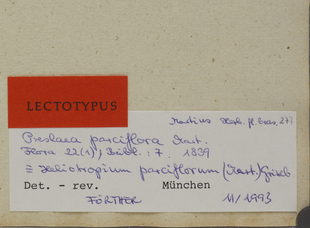 LECTOTYPUS
Martius Herb. fl. bras. 277
Preslaea parciflora Mart.
Flora 22(1), Beibl.: 7. 1839
≡ Heliotropium parciflorum (Mart.) Gürke
Det. - rev. München
FÖRTHER 11/1993